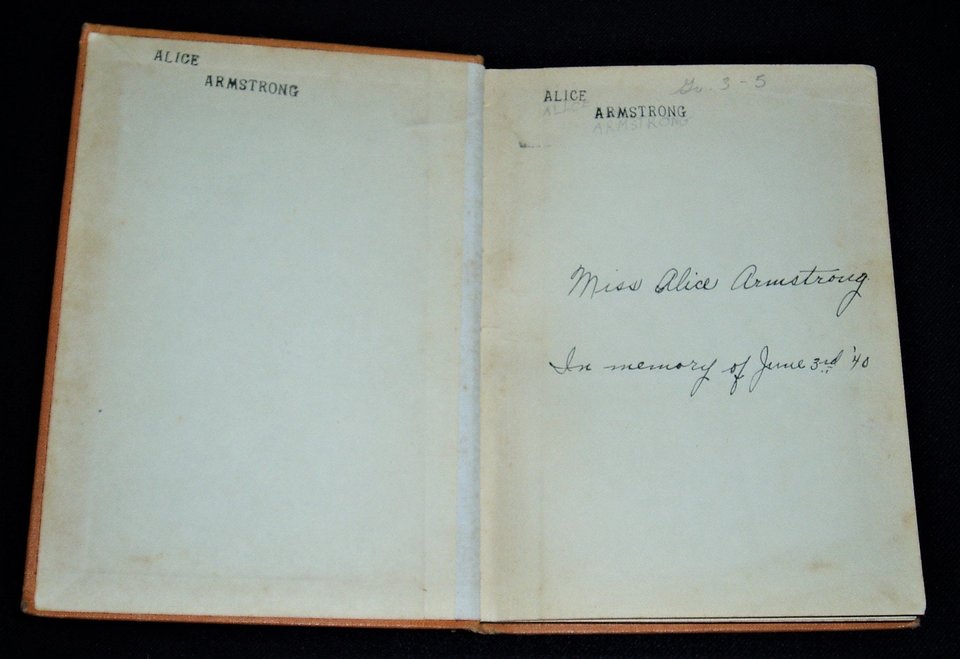 ALICE
ARMSTRONG
ALICE
ARMSTRONG
Gr. 3-5
ALICE
ARMSTRONG
Miss Alice Armstrong
In memory of June 3rd '40